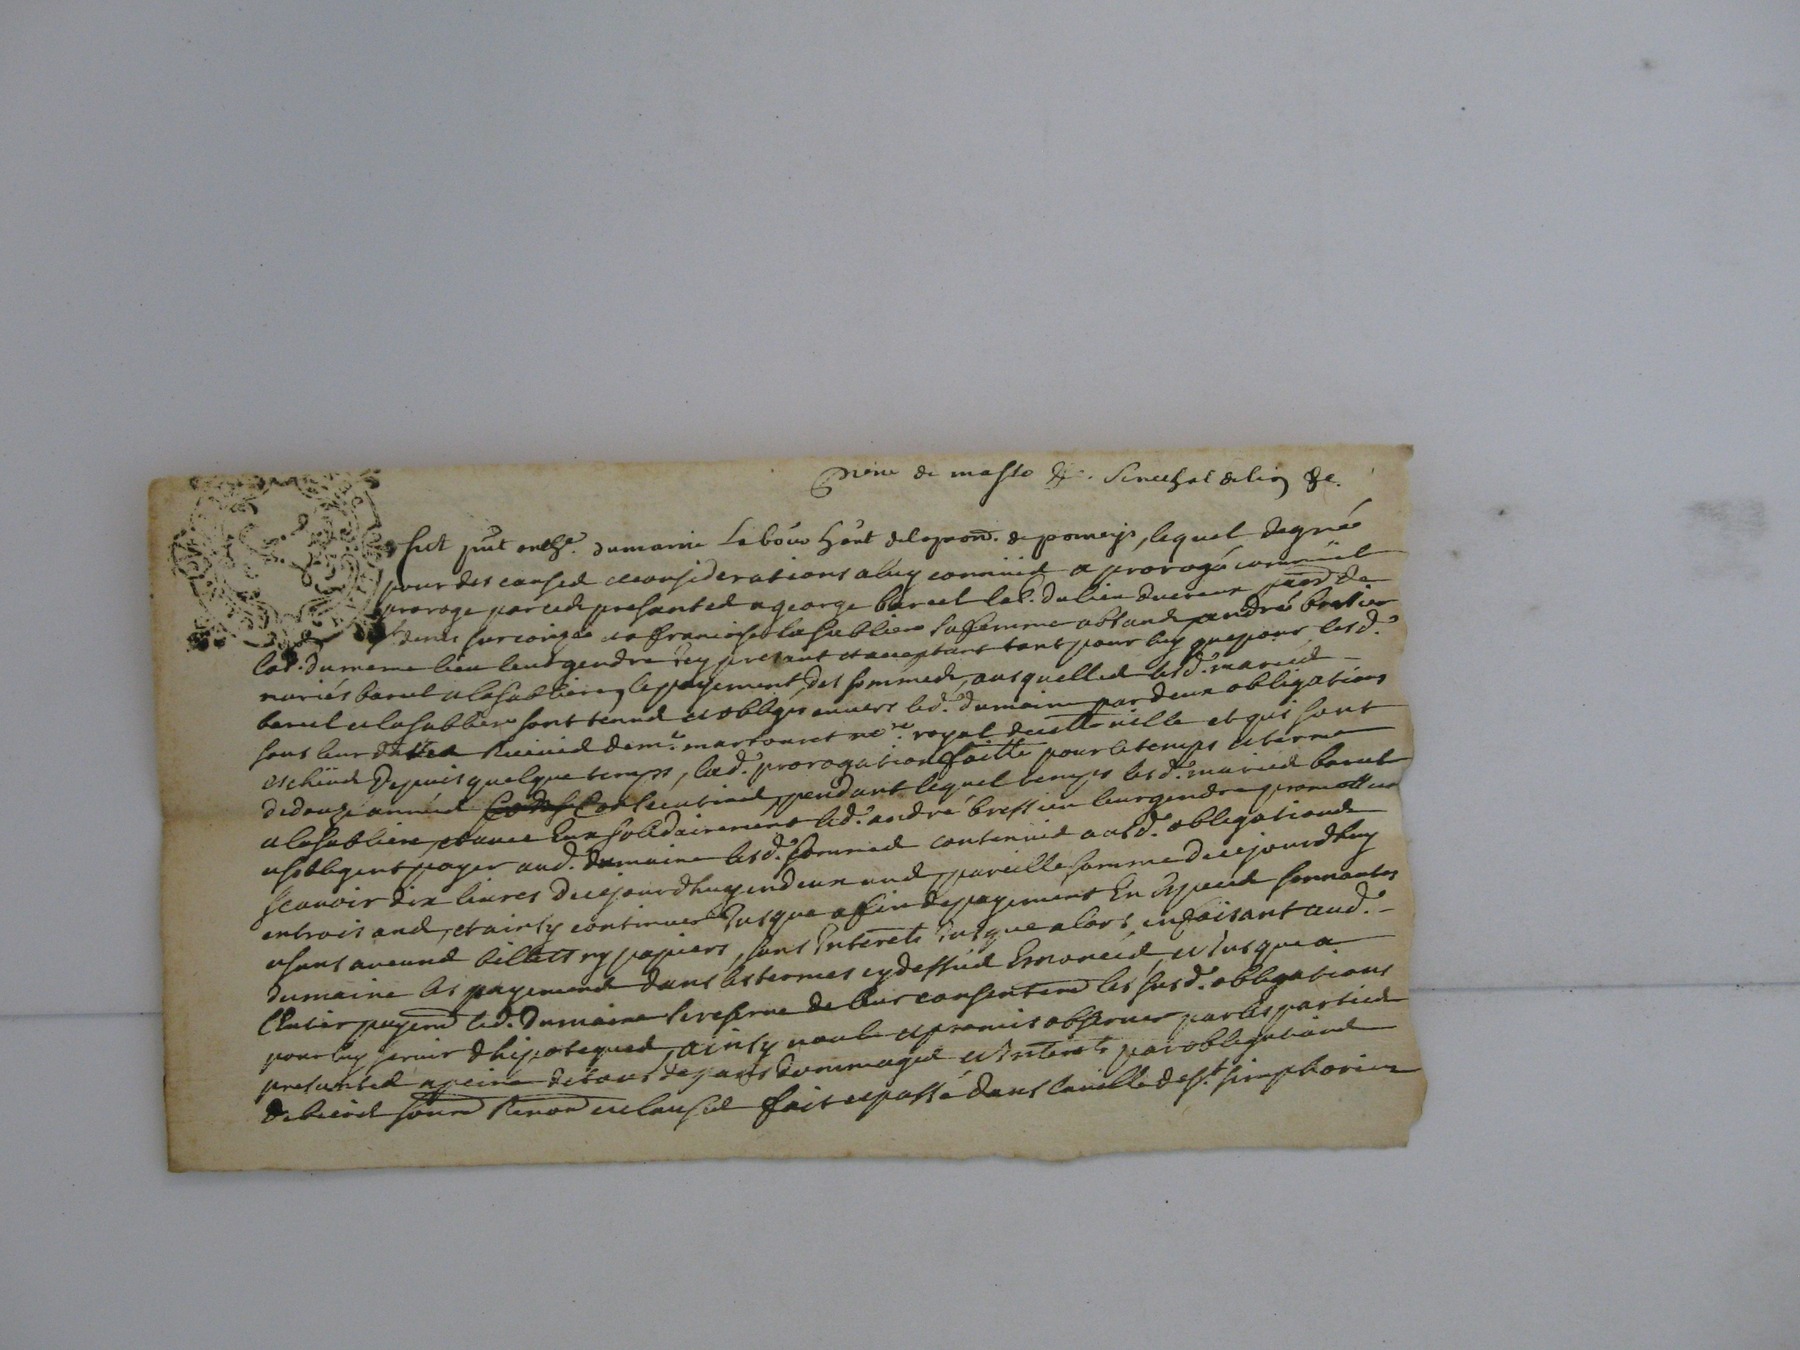 pierre de masso &c. senechal de lion &c.
fut pñt anth.ᵉ dumaine Labour hãnt de la parr. de pomeys, lequel de gréé
pour des causes et considerations a luy connues a prorogé comme il
proroge par ces presantes a george barcel lab. du lieu du parr. de
st denis sur coize et a françoise la sabliere sa femme absants andré bressieu
lab. du meme lieu leur gendre icy presant et acceptant tant pour luy que pour lesd.
mariés barcel et la sabliere, le payement des sommes, ausquelles lesd. mariés
barcel et la sabliere sont tenus et obligés envers led. dumaine par deux obligations
sous leur dattes receües de mᵉ. notʳᵉ. royal de cette ville et qui sont
escheües depuis quelque temps, lad. prorogation faitte pour le temps et terme
de douze années consecutives, pendant lequel temps lesd. mariés barcel
et la sabliere, et avec eux solidairement led. andré bressieu leur gendre promettent
et s'obligent payer aud. dumaine lesd. sommes contenues ausd. obligations
scavoir dix livres de ce jourdhuy en deux ans, pareille somme de ce jourdhuy
en trois ans, et ainsy continuer jusque a fin de payement en especes sonnantes
et sans aucuns billets ny papiers, sans interets jusque alors, en faisant aud.
dumaine les payements dans les termes cy dessus enoncés, et jusque a
l'entier payemt led. dumaine se reserve de leur consentemt les susd. obligations
pour luy servir d'hipoteques, ainsy voulu et promis observer par les parties
presantes a peine de tous depans dommages et interets par obligations
de biens soumᵒⁿ renonᵒⁿ et clauses fait et passé dans la ville de sᵗ simphorien